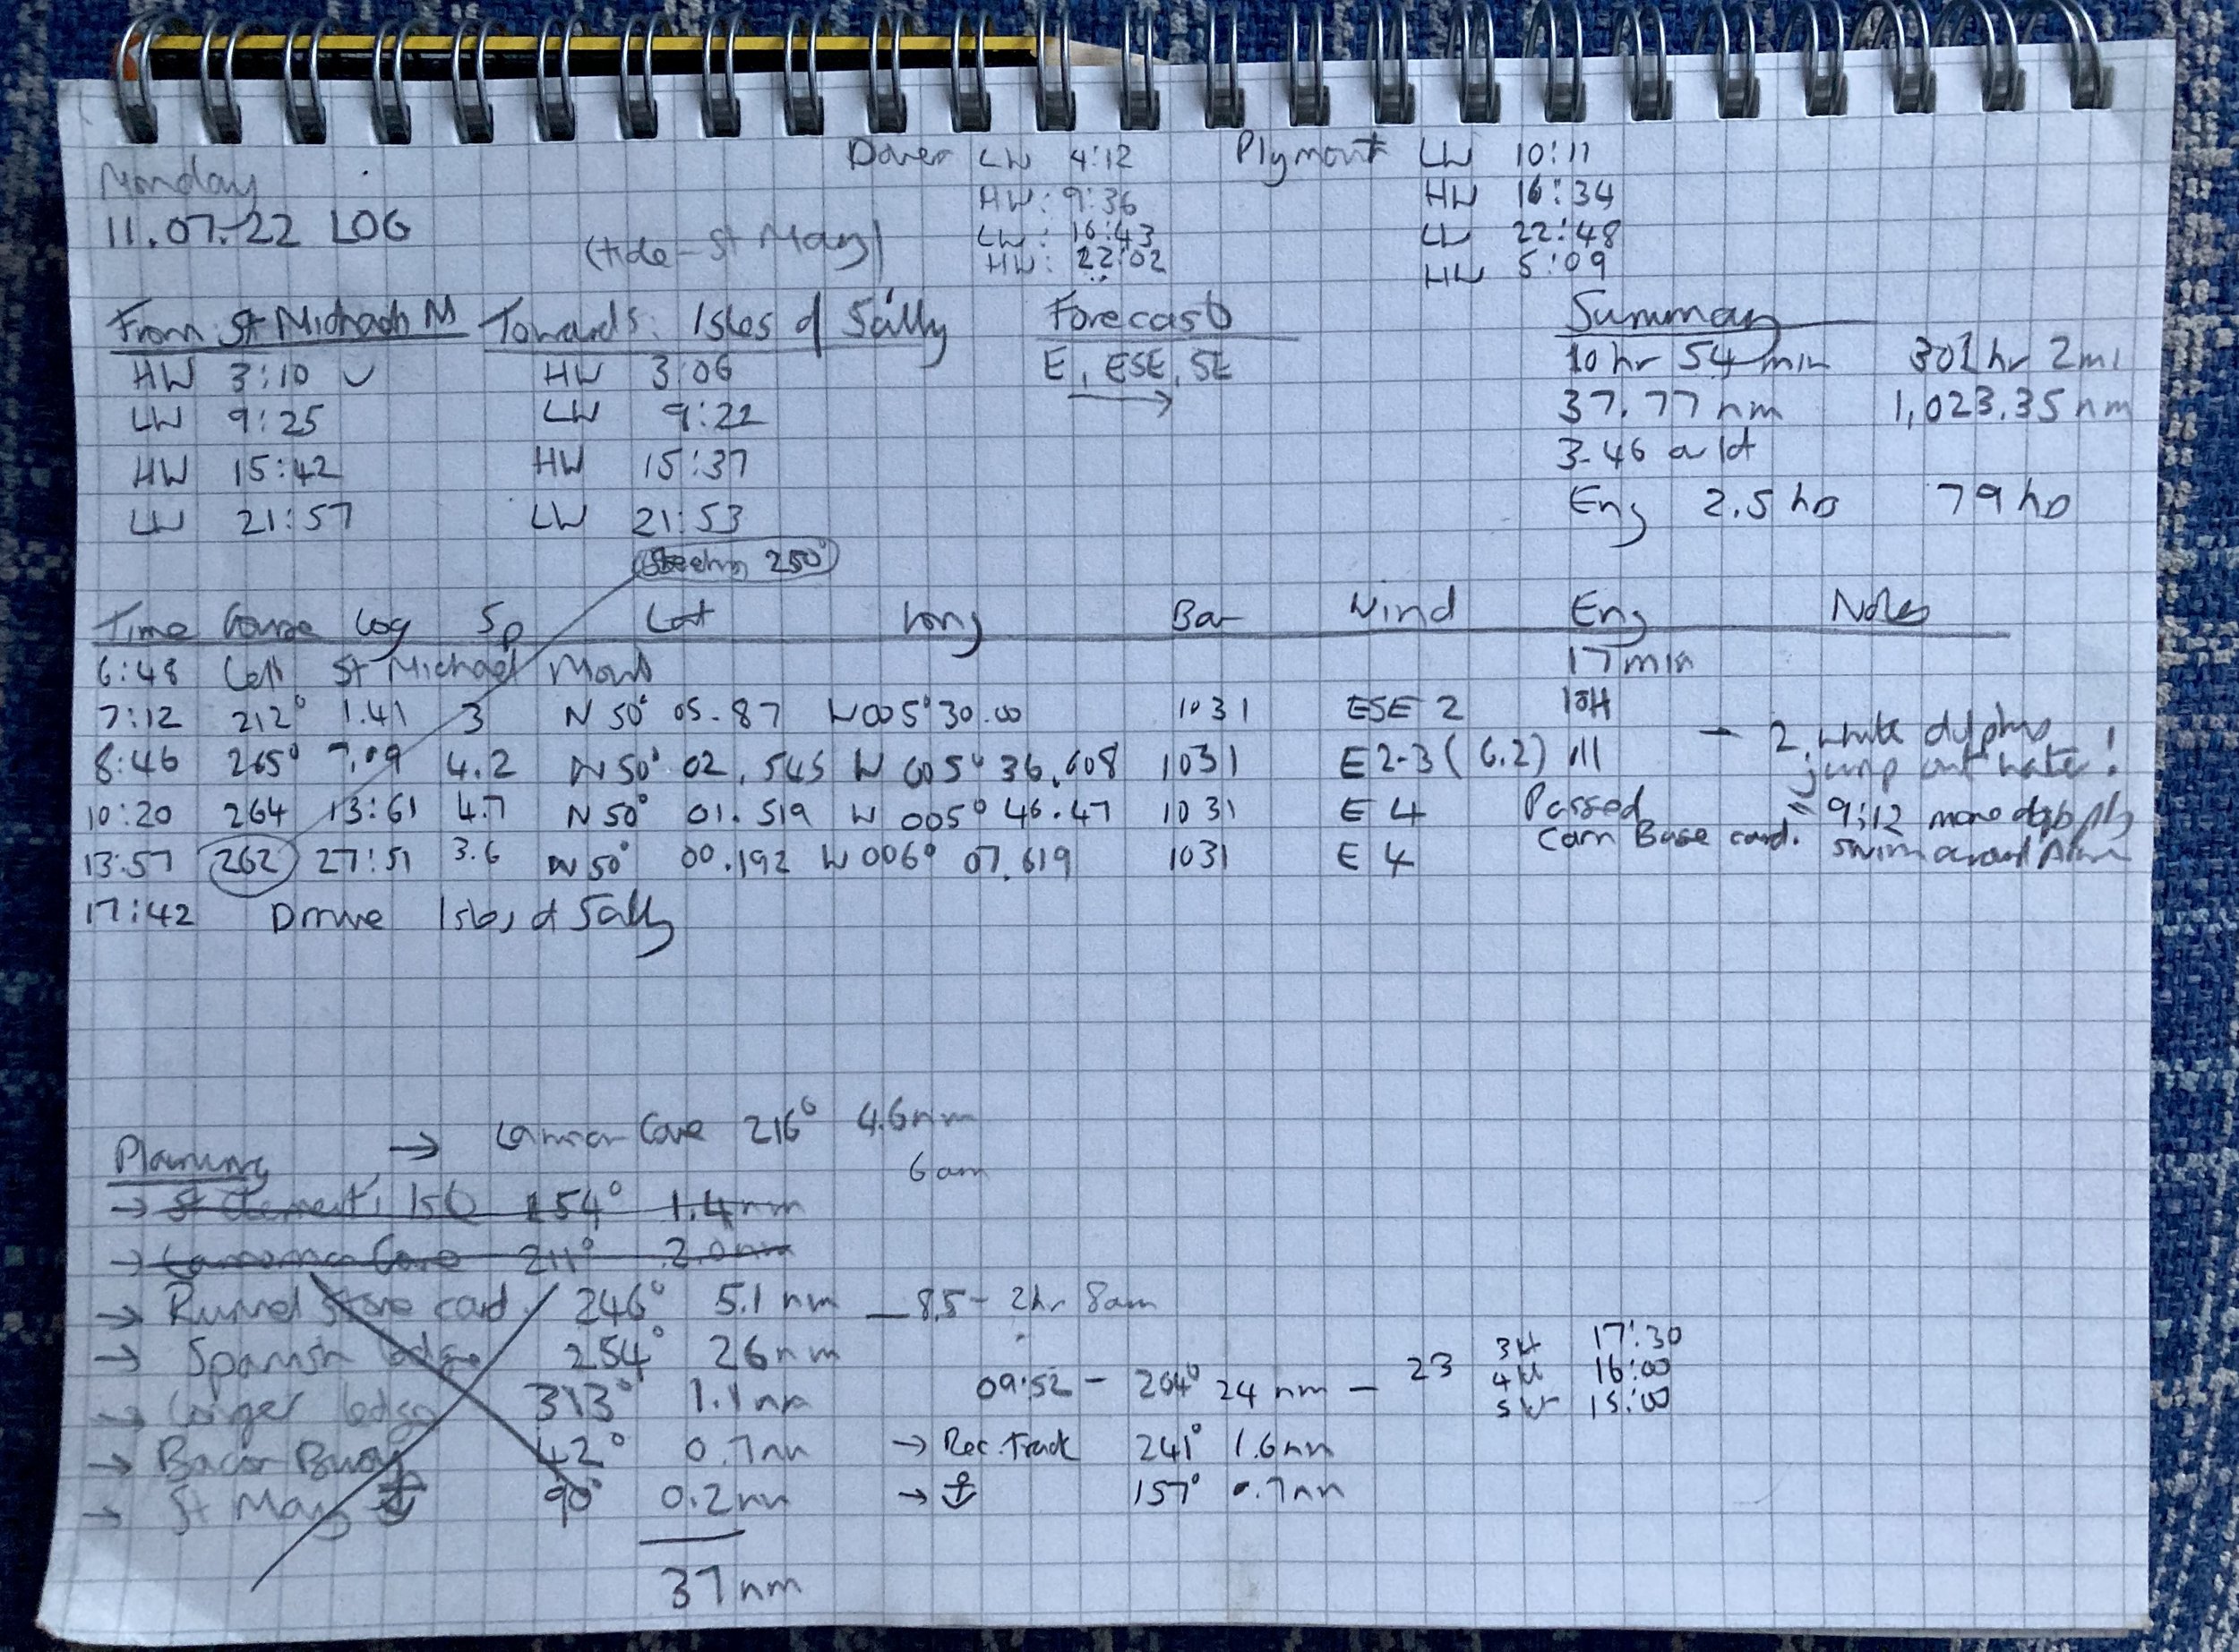 Dover LW 4:12 Plymouth LW 10:11
Monday HW: 9:36 HW 16:34
11.07.22 LOG (tide - St Mary) LW: 16:43 LW 22:48
HW: 22:02 HW 5:09
From: St Michach M Towards: Isles of Scilly Forecast Summary
HW 3:10 HW 3:06 E, ESE, SE 10 hr 54 min 301 hr 2mi
LW 9:25 LW 9:22 → 37.77 nm 1,023.35 nm
HW 15:42 HW 15:37 3.46 kt
LW 21:57 LW 21:53 Eng 2.5 hrs 79 hrs
Steering 250°
Time Course Log Sp Lat Long Bar Wind Eng Notes
6:48 Left St Michael Mount 17 min
7:12 212° 1.41 3 N 50° 05.87 W 005° 30.00 1031 ESE 2
8:46 265° 7.09 4.2 N 50° 02.545 W 005° 36.608 1031 E 2-3 (6.2) - 2 white dolphins jump out water!
10:20 264 13:61 4.7 N 50° 01.519 W 005° 46.47 1031 E 4 Passed Carn Base card. 9:12 more dolphins swim around
13:57 262 27:51 3.6 N 50° 00.192 W 006° 07.619 1031 E 4
17:42 Isles of Scilly
Planning → Lamorna Cove 216° 4.6nm
6am
→ St Clement's Isle 154° 1.4nm
→ Lamorna Cove 211° 2.0nm
→ Runnel Stone card. 246° 5.1 nm - 8.5 - 2hr 8am
→ Spanish Ledge 254° 26nm 3kt 17:30
→ ledge 313° 1.1nm 09:52 - 264° 24 nm - 23 4kt 16:00
5kt 15:00
→ Bacon Buoy 42° 0.7nm → Rec. Track 241° 1.6nm
→ St Mary ⚓ 90° 0.2nm → ⚓ 157° 0.7nm
37nm